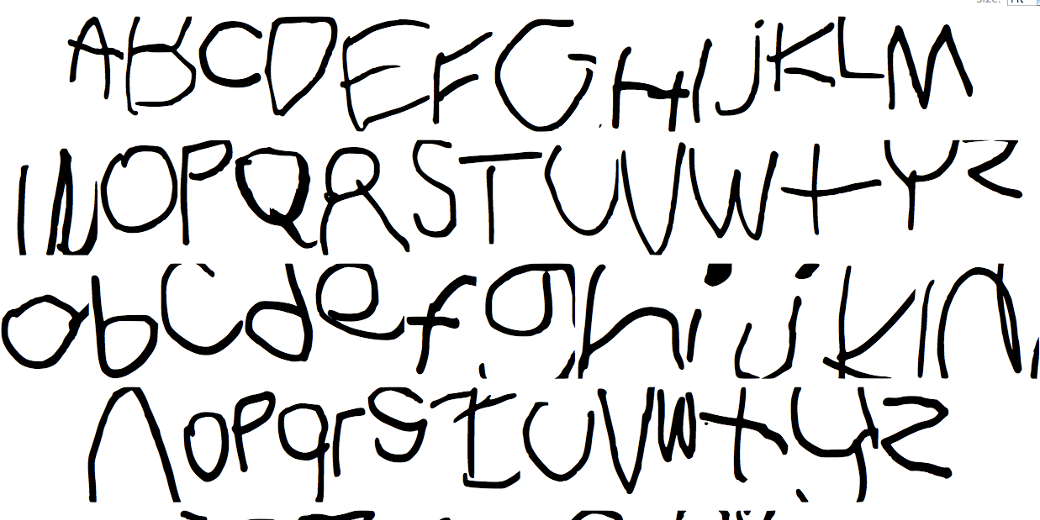 Size: Fit
A B C D E F G H I J K L M
N O P Q R S T U V W X Y Z
a b c d e f g h i j k l m
n o p q r s t u v w x y z